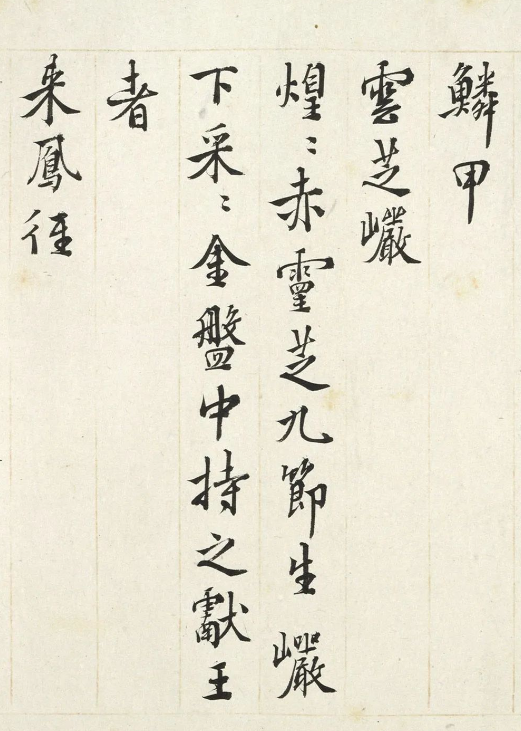 鱗甲
雲芝巖
煌〻赤靈芝九節生巖
下采〻金盤中持之獻王
者
来鳳徑